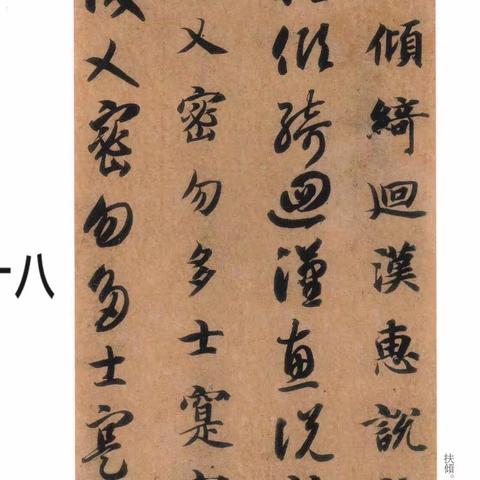 扶傾。
傾綺迴漢惠說
傾綺迴漢惠說
乂密勿多士寔
乂密勿多士寔
八